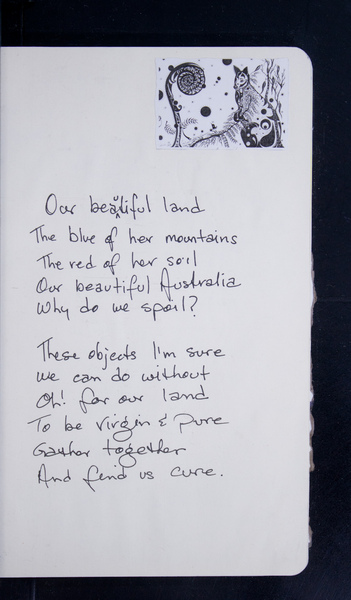 Our beautiful land
The blue of her mountains
The red of her soil
Our beautiful Australia
Why do we spoil?
These objects I'm sure
we can do without
Oh! for our land
To be virgin & pure
Gather together
And find us cure.